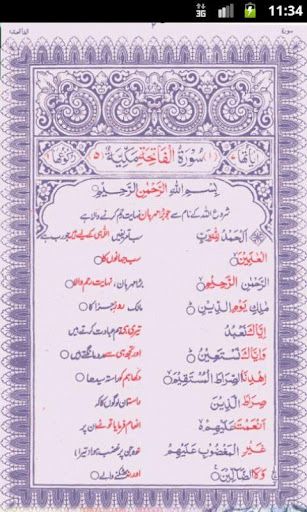 3G 11:34
سورة
الفاتحة
اياتها ٧
(١) سُوْرَةُ الْفَاتِحَةِ مَكِّيَّةٌ (٥)
رکوعها ١
بِسْمِ اللّٰهِ الرَّحْمٰنِ الرَّحِيْمِ
شروع اللہ کے نام سے جو بڑا مہربان نہایت رحم والا ہے
اَلْحَمْدُ لِلّٰهِ رَبِّ سب تعریفیں اللہ ہی کے لیے ہیں جو رب ہے
الْعٰلَمِيْنَ سب جہانوں کا
الرَّحْمٰنِ الرَّحِيْمِ بڑا مہربان، نہایت رحم والا
مٰلِكِ يَوْمِ الدِّيْنِ مالک روز جزا کا
اِيَّاكَ نَعْبُدُ تیری ہی ہم عبادت کرتے ہیں
وَاِيَّاكَ نَسْتَعِيْنُ اور تجھ ہی سے مدد مانگتے ہیں
اِهْدِنَا الصِّرَاطَ الْمُسْتَقِيْمَ دکھا ہم کو راستہ سیدھا
صِرَاطَ الَّذِيْنَ راستہ ان لوگوں کا کہ
اَنْعَمْتَ عَلَيْهِمْ انعام فرمایا تو نے ان پر
غَيْرِ الْمَغْضُوْبِ عَلَيْهِمْ نہ
وَلَا الضَّآلِّيْنَ اور نہ بھٹکنے والے